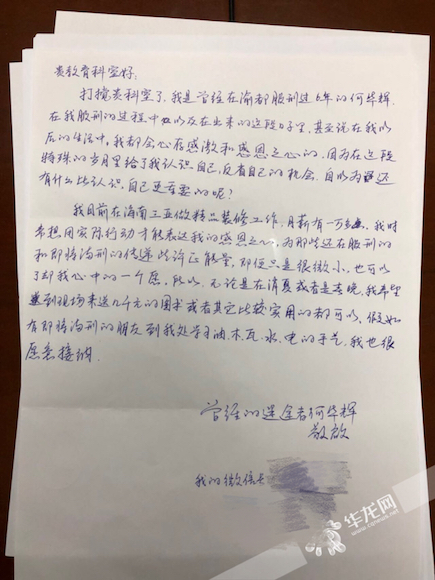 贵教育科室好:
打搅贵科室了,我是曾经在渝都服刑过6年的何华辉.
在我服刑的过程中以及在出来的这段日子里,甚至说在我以
后的生活中,我都会心存感激和感恩之心的,因为在这段
特殊的岁月里给了我认识自己,反省自己的机会.自以为还
有什么比认识自己更重要的呢?
我目前在海南三亚做精品装修工作,月薪有一万多,我时
常想用实际行动才能表达我的感恩之心,为那些还在服刑的
和即将满刑的传递些许正能量,即使只是很微小,也可以
了却我心中的一个愿,所以,无论是在消夏或者是春晚,我希望
到现场来送几千元的图书或者其它比较实用的都可以,假如
有即将满刑的朋友到我处学习油.木.瓦.水.电的手艺,我也很
愿意接纳.
曾经的迷途者何华辉
敬启
我的微信号
华龙网
www.cqnews.net